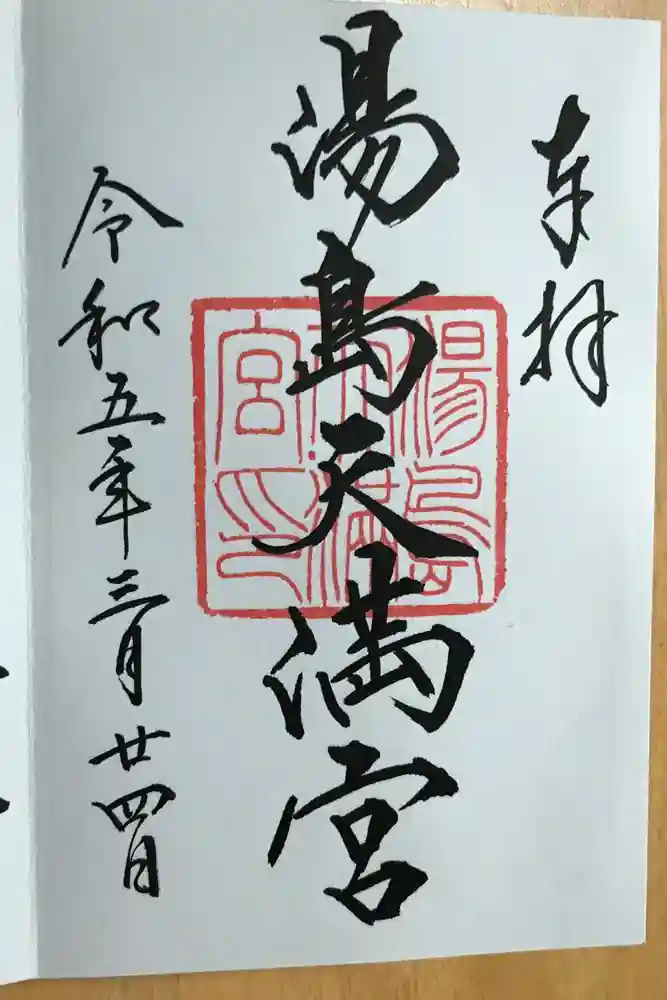 奉拝
湯島天満宮
湯島天満宮印
令和五年三月廿四日